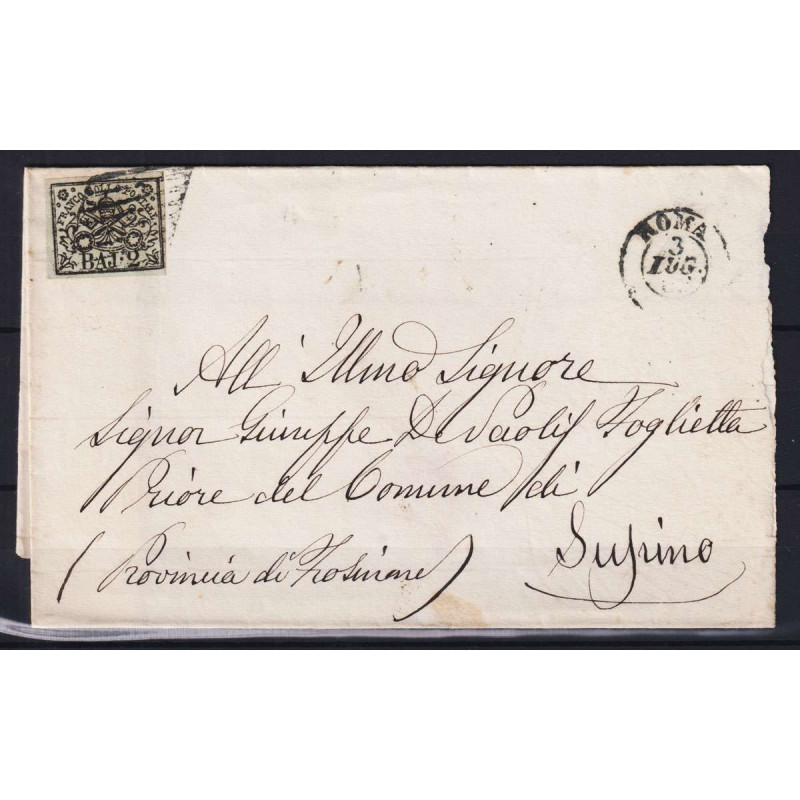 FRANCO BOLLO POSTALE
BAJ. 2
ROMA
3
LUG.
All' Illmo Signore
Signor Giuseppe De Paolis Foglietta
Priore del Comune di
Supino
(Provincia di Frosinone)